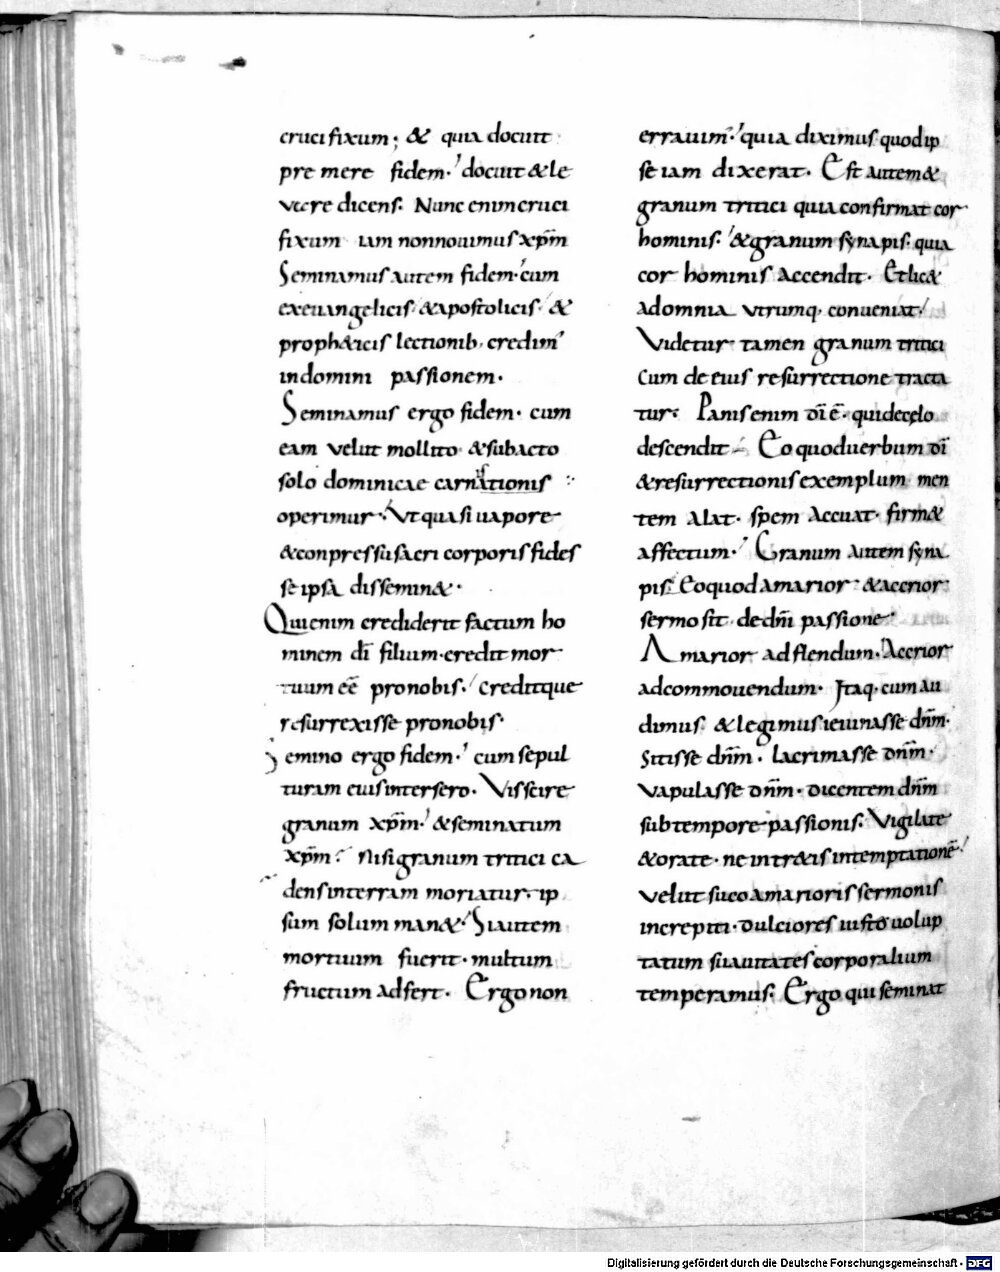 crucifixum; & quia docuit
premere fidem·' docuit & le
vare dicens· Nunc enim cruci
fixum iam non nouimus xp̄m
Seminamus autem fidem·' cum
ex euangelicis & apostolicis· &
proph&icis lectionib; credim'
in domini passionem·
Seminamus ergo fidem· cum
eam velut mollito & subacto
solo dominicae carnationis
operimur· Vt quasi uapore
& conpressu sacri corporis fides
se ipsa dissemin&·
Qui enim crediderit factum ho
minem dī filium· credit mor
tuum eē pro nobis· credit que
resurrexisse pro nobis·
Semino ergo fidem·' cum sepul
turam eius intersero· Vis scire
granum xp̄m·' & seminatum
xp̄m· Nisi granum tritici ca
dens in terram moriatur· ip
sum solum man&·' Si autem
mortuum fuerit· multum
fructum adfert· Ergo non
errauim'·' quia diximus quod ip
se iam dixerat· Est autem &
granum tritici quia confirmat cor
hominis·' & granum synapis· quia
cor hominis accendit· Et lic&
ad omnia utrumq; conueniat·
Videtur tamen granum tritici
cum de eius resurrectione tracta
tur· Panis enim dī ē· qui de cęlo
descendit· Eo quod uerbum dī
& resurrectionis exemplum men
tem alat· spem accuat· firm&
affectum·' Granum autem syna
pis· Eo quod amarior & acrior
sermo sit· de dn̄i passione·
Amarior ad flendum·' Acrior
ad commouendum· Itaq; cum au
dimus· & legimus ieiunasse dn̄m·
Sitisse dn̄m· lacrimasse dn̄m·
Vapulasse dn̄m· dicentem dn̄m
sub tempore passionis· Vigilate
& orate· ne intr&is in temptationē·
velut suco amarioris sermonis
increpiti· dulciores iusto uolup
tatum suauitates corporalium
temperamus· Ergo qui seminat
Digitalisierung gefördert durch die Deutsche Forschungsgemeinschaft - DFG